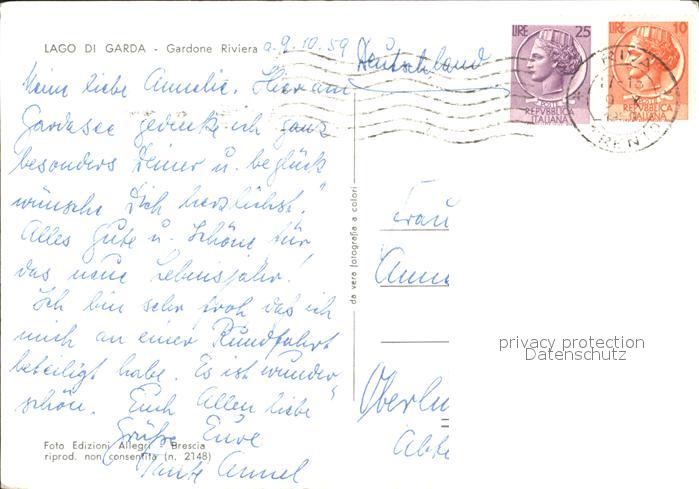 LAGO DI GARDA - Gardone Riviera a. 9.10.59
Deutschland
LIRE 25
POSTE
REPVBBLICA
ITALIANA
LIRE 10
POSTE
REPVBBLICA
ITALIANA
Meine liebe Annelie. Hier am
Gardasee gedenke ich ganz
besonders Deiner u. beglück
wünsche Dich herzlichst.
Alles Gute u. Schöne für
das neue Lebensjahr!
Ich bin sehr froh das ich
mich an einer Rundfahrt
beteiligt habe. Es ist wunder
schön. Euch Allen liebe
Grüße Eure
Tante Annel
da vera fotografia a colori
Frau
Anne
privacy protection
Datenschutz
Oberlu
Foto Edizioni Allegri - Brescia
riprod. non consentita (n. 2148)